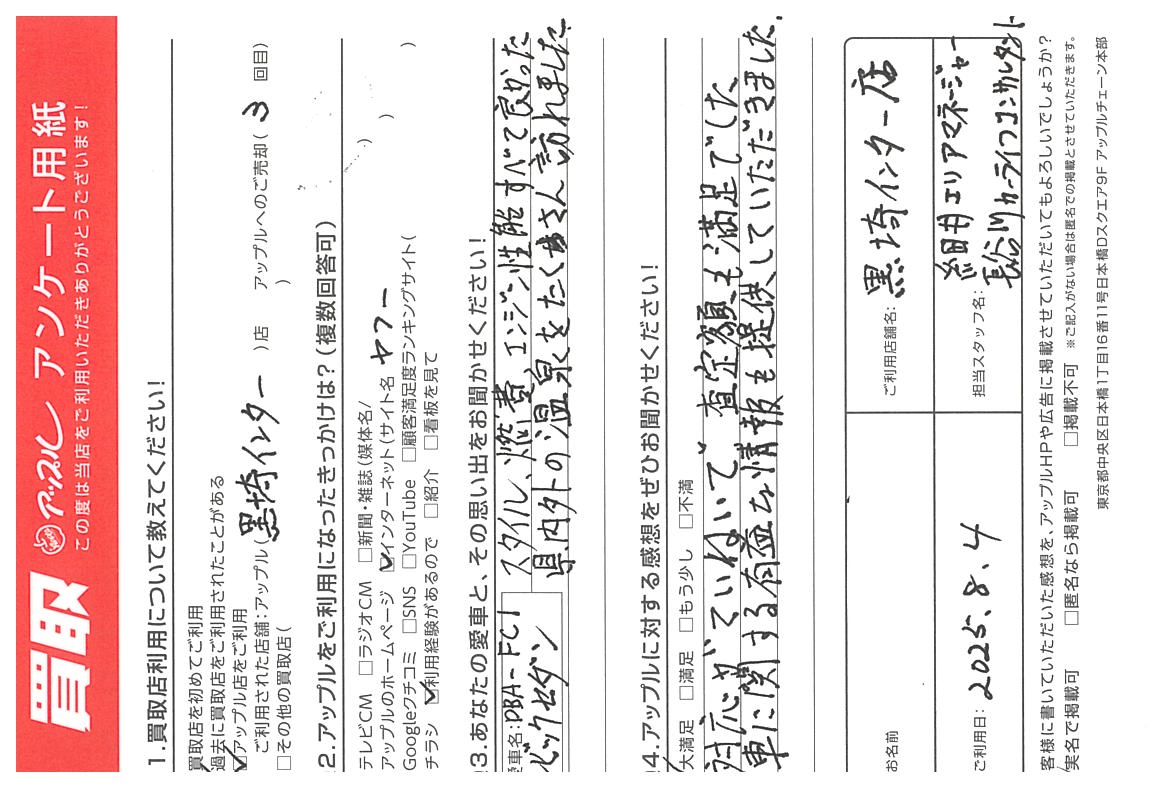 買取 アップル アンケート用紙
この度は当店をご利用いただきありがとうございます!
1.買取店利用について教えてください!
買取店を初めてご利用
過去に買取店をご利用されたことがある
アップル店をご利用
ご利用された店舗:アップル(黒埼インター )店 アップルへのご売却( 3 回目)
□その他の買取店( )
2.アップルをご利用になったきっかけは?(複数回答可)
テレビCM □ラジオCM □新聞・雑誌(媒体名/ )
アップルのホームページ ☑インターネット(サイト名 ヤフー )
Googleクチコミ □SNS □YouTube □顧客満足度ランキングサイト( )
チラシ ☑利用経験があるので □紹介 □看板を見て
3.あなたの愛車と、その思い出をお聞かせください!
愛車名:DBA-FC1
ビックセダン
スタイル、燃費、エンジン性能すべて良かった
県内外の温泉をたくさん訪れました
4.アップルに対する感想をぜひお聞かせください!
大満足 □満足 □もう少し □不満
対応がていねいで 査定額も満足でした
車に関する有益な情報も提供していただきました。
お名前
ご利用店舗名: 黒埼インター店
ご利用日: 2025.8.4
担当スタッフ名: 細井エリアマネージャー
長谷川カーライフコンサルタント
客様に書いていただいた感想を、アップルHPや広告に掲載させていただいてもよろしいでしょうか?
実名で掲載可 □匿名なら掲載可 □掲載不可 ※ご記入がない場合は匿名での掲載とさせていただきます。
東京都中央区日本橋1丁目16番11号日本橋Dスクエア9F アップルチェーン本部